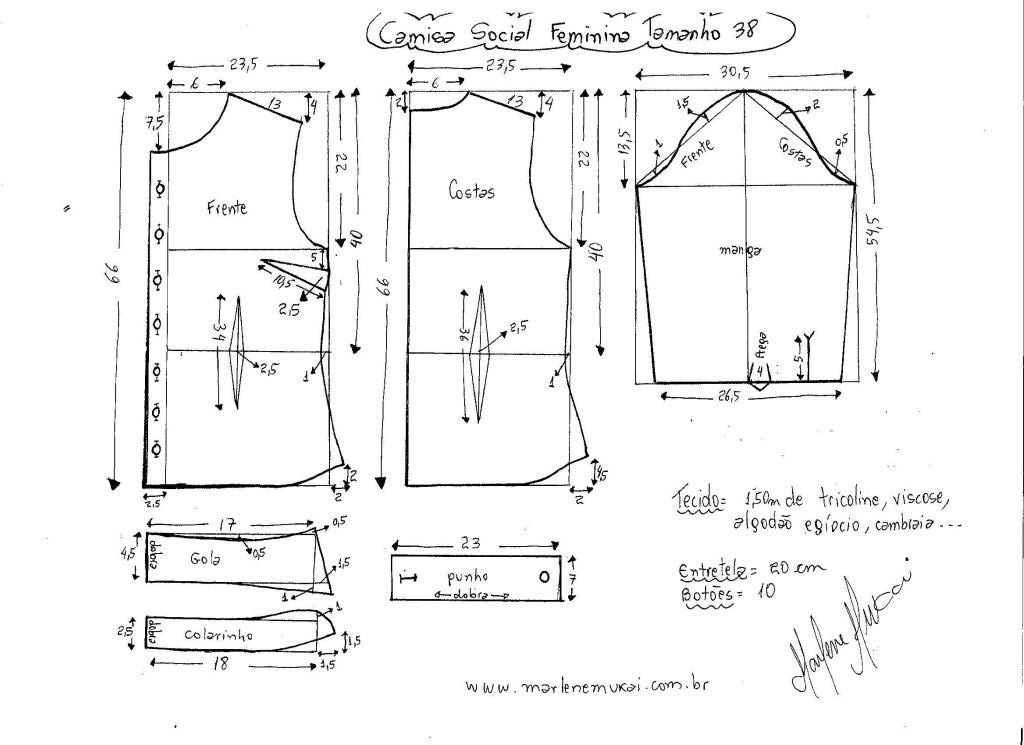 Camisa Social Feminina Tamanho 38
23,5
6
13
4
7,5
22
40
66
Frente
5
10,5
2,5
34
2,5
1
2
2
2,5
23,5
6
2
13
4
22
40
66
Costas
36
2,5
1
4,5
2
30,5
1,5
2
13,5
1
Frente
Costas
0,5
54,5
manga
Prega
4
5
26,5
17
0,5
4,5
dobra
Gola
0,5
1,5
1
1
2,5
dobra
colarinho
1,5
18
1,5
23
punho
dobra
7
Tecido= 1,50m de tricoline, viscose,
algodão egípcio, cambraia...
Entretela= 20 cm
Botões= 10
Marlene Mukai
www.marlenemukai.com.br